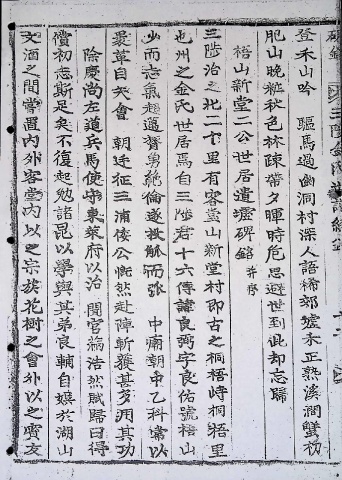 登禾山吟 驅馬過幽洞村深人語稀郊墟禾正熟溪澗蟹初
肥山晚粧秋色林疎帶夕暉時危思避世到此却忘歸
梧山新堂二公世居遺墟碑銘 幷序
三陟治之北二十里有客靈山新堂村即古之桐梧峙桐梧里
也州之金氏世居焉自三陟君十六傳諱良弼字良佑號梧山
少而志氣超邁膂勇絶倫遂投觚而弧 中廟朝中乙科常以
裹革自矢會 朝廷征三浦倭公慨然赴陣斬獲甚多用其功
除慶尙左道兵馬使守東萊府以治 聞官滿浩然賦歸曰得
償初志斯足矣不復起勉諸昆以學與其弟良輔自娛於湖山
文酒之間嘗置內外客堂內以之宗族花樹之會外以之賓友